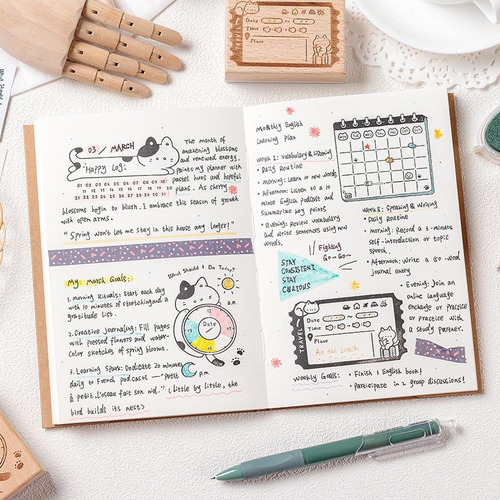 03 / MARCH
"Happy Log:
01 02 03 04 05 06 07 08 09 10
11 12 13 14 15 16 17 18 19 20
21 22 23 24 25 26 27 28 29 30 31
The month of
awakening blossoms
and renewed energy,
paints my planner with
pastel hues and hopeful
plans. As cherry
blossoms begin to blush. I embrace this season of growth
with open arms.
"Spring won't let me stay in this house any longer!"
My March Goals:
What Should I Do Today?
a.m.
1. Morning Rituals: Start each day
with 10 minutes of stretching and a
gratitude list.
2. Creative journaling: Fill pages
with pressed flowers and water-
color sketches of spring blooms.
Date
2. Learning Spark: Dedicate 20 minutes
daily to French podcasts — "Petit
à petit, l'oiseau fait son nid." (Little by little, the
bird builds its nest>
p.m.
Monthly English
Learning Plan
Week 1: Vocabulary & Listening
Daily Routine
Morning: Learn 10 new words
Afternoon: Listen to a 10
minute English podcast and
summarize key points
Evening: Review vocabulary
and write sentences using new
words.
Week 2: Speaking & Writing
Daily Routine
morning: Record a 3-minute
self-introduction or topic
speech.
Afternoon: Write a 60-word
journal entry
Evening: Join an
online language
exchange or practice
or practice with
a study partner.
Fighting
Go~Go~
STAY
CONSISTENT
STAY
CURIOUS
TRAVEL
Date
Time
Place
At the beach
Weekly Goals:
Finish 1 English book!
Participate in 2 group discussions!
Date
Time
Place